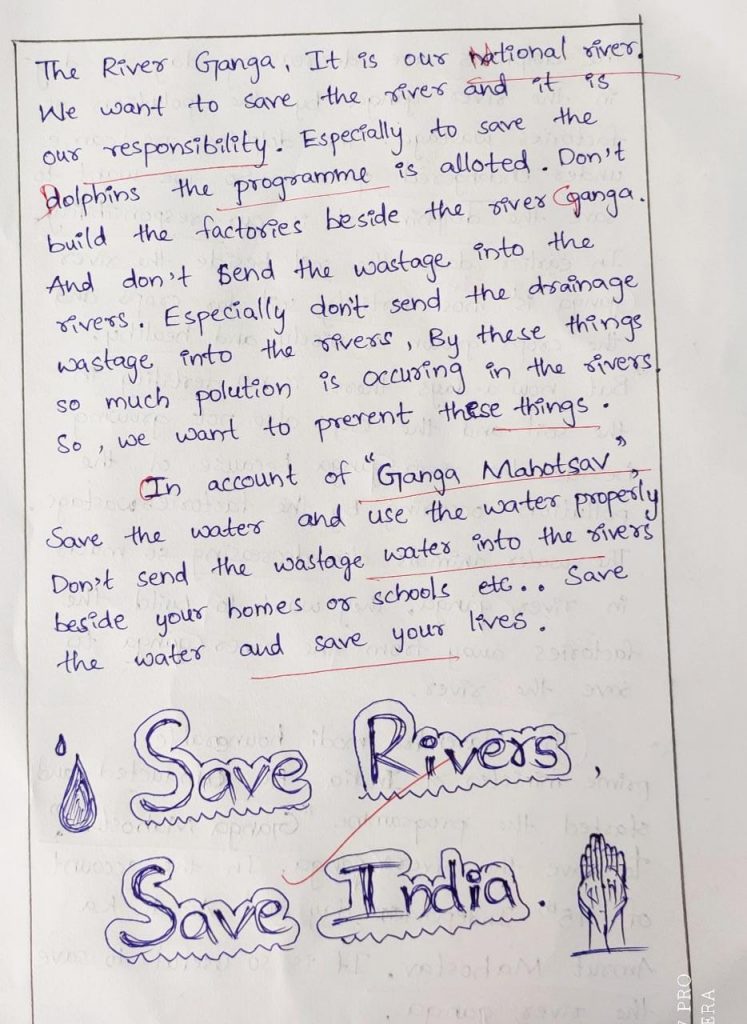 The River Ganga, It is our National river.
We want to save the river and it is
our responsibility. Especially to save the
Dolphins the programme is alloted. Don't
build the factories beside the river Ganga.
And don't Send the wastage into the
rivers. Especially don't send the drainage
wastage into the rivers, By these things
so much polution is occuring in the rivers.
So, we want to prevent these things.
In account of "Ganga Mahotsav",
Save the water and use the water properly
Don't send the wastage water into the rivers
beside your homes or schools etc... Save
the water and save your lives.
Save Rivers,
Save India.